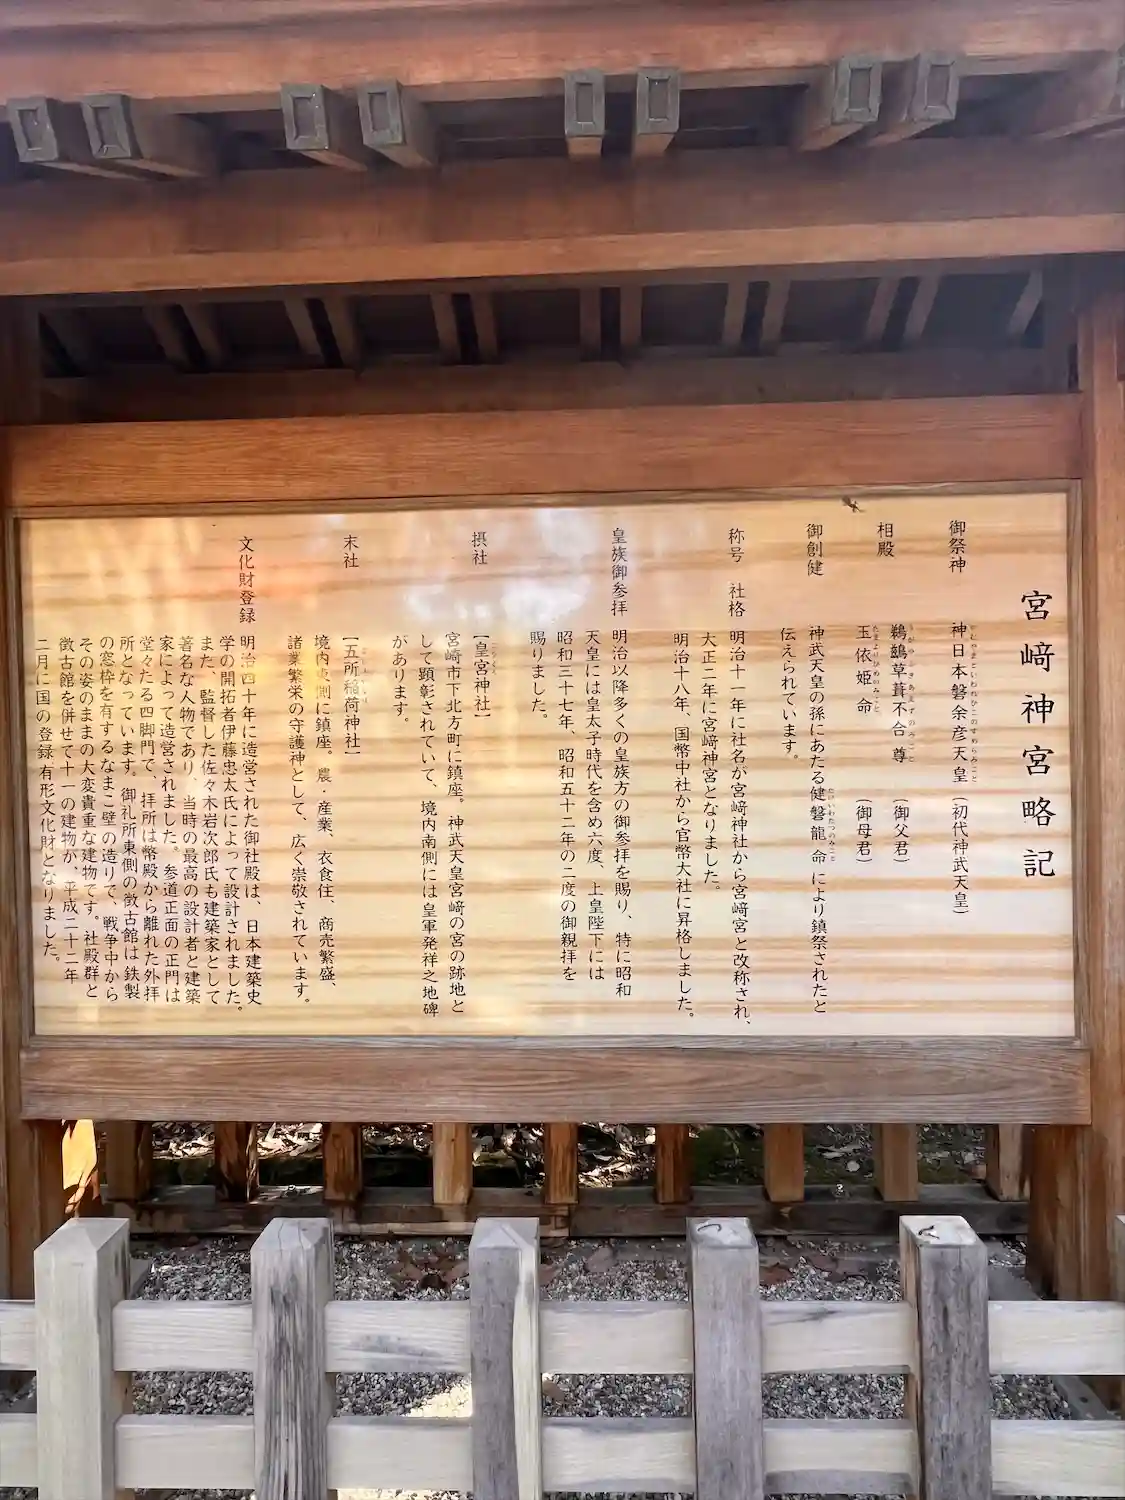 宮﨑神宮略記
御祭神 神日本磐余彦天皇(初代神武天皇)
かむやまといわれひこのすめらみこと
相殿 鵜鷀草葺不合尊(御父君)
うがやふきあえずのみこと
玉依姫命(御母君)
たまよりひめのみこと
御創健 神武天皇の孫にあたる健磐龍命により鎮祭されたと
たけいわたつのみこと
伝えられています。
称号 社格 明治十一年に社名が宮﨑神社から宮﨑宮と改称され、
大正二年に宮﨑神宮となりました。
明治十八年、国幣中社から官幣大社に昇格しました。
皇族御参拝 明治以降多くの皇族方の御参拝を賜り、特に昭和
天皇には皇太子時代を含め六度、上皇陛下には
昭和三十七年、昭和五十二年の二度の御親拝を
賜りました。
摂社 【皇宮神社】
宮崎市下北方町に鎮座。神武天皇宮﨑の宮の跡地と
して顕彰されていて、境内南側には皇軍発祥之地碑
があります。
末社 【五所稲荷神社】
境内東側に鎮座。農・産業、衣食住、商売繁盛、
諸業繁栄の守護神として、広く崇敬されています。
文化財登録 明治四十年に造営された御社殿は、日本建築史
学の開拓者伊藤忠太氏によって設計されました。
また、監督した佐々木岩次郎氏も建築家として
著名な人物であり、当時の最高の設計者と建築
家によって造営されました。参道正面の正門は
堂々たる四脚門で、拝所は幣殿から離れた外拝
所となっています。御札所東側の徴古館は鉄製
の窓枠を有するなまこ壁の造りで、戦争中から
その姿のままの大変貴重な建物です。社殿群と
徴古館を併せて十一の建物が、平成二十二年
二月に国の登録有形文化財となりました。